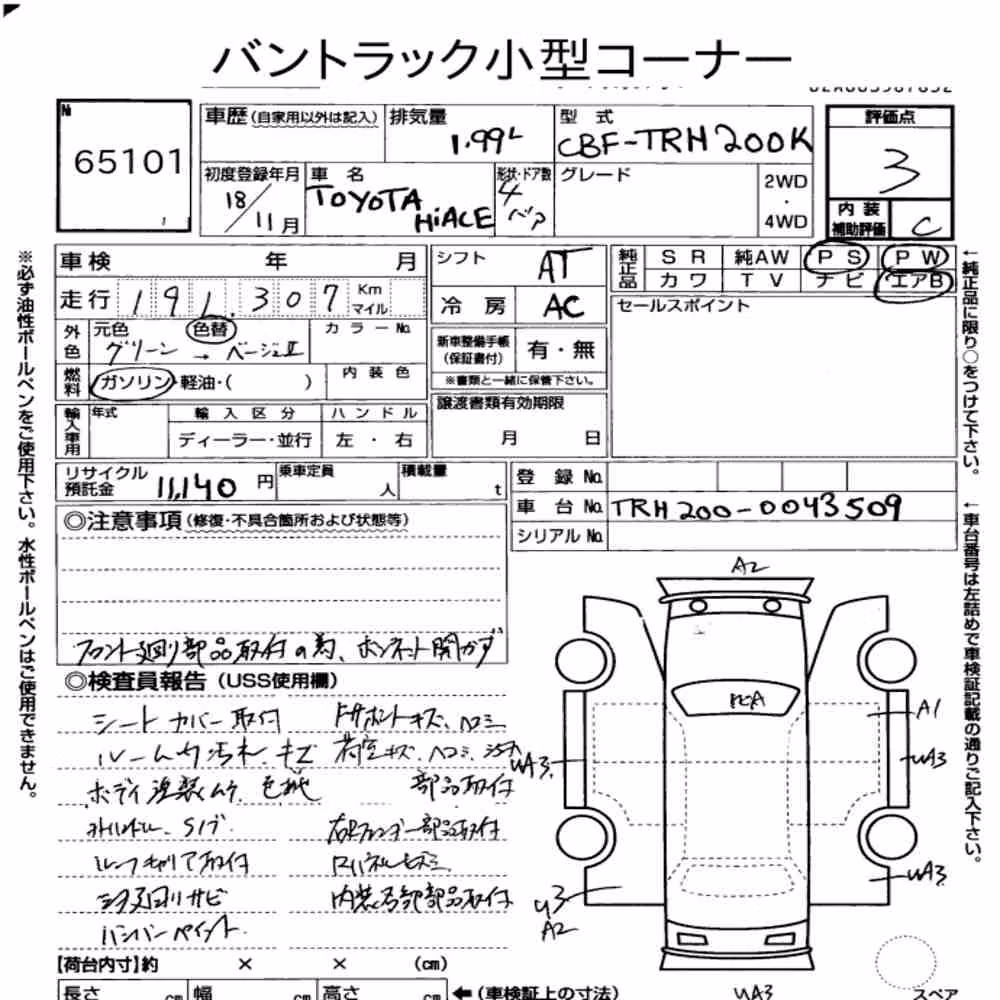 バントラック小型コーナー
№ 65101
車歴(自家用以外は記入) 排気量 1.99L 型式 CBF-TRH200K
評価点 3
初度登録年月 18/11月 車名 TOYOTA HiACE 形状・ドア数 4 グレード 2WD・4WD
内装補助評価 C
車検 年 月
走行 191.307 Km マイル
シフト AT
冷房 AC
純正品 SR 純AW PS PW
カワ TV ナビ エアB
セールスポイント
外色 元色 グリーン → 色替 ベージュII カラーNo.
燃料 ガソリン・軽油・( ) 内装色
新車整備手帳(保証書付) 有・無
※書類と一緒に保管下さい。
輸入車用 年式 輸入区分 ハンドル
ディーラー・並行 左・右
譲渡書類有効期限
月 日
リサイクル預託金 11,140円 乗車定員 人 積載量 t
登録No.
車台No. TRH200-0043509
シリアルNo.
◎注意事項(修復・不具合箇所および状態等)
フロント廻り部品取付の為、ボンネット開かず
◎検査員報告(USS使用欄)
シートカバー取付
ルーム内汚れ、キズ 荷室キズ、ヘコミ
ボディ塗装ムラ 部品取付
ルーフキャリア取付
下廻りサビ 内装各部部品取付
バンパーペイント
【荷台内寸】約 × × (cm)
長さ cm 幅 cm 高さ cm ←(車検証上の寸法)
A2
A1
UA3
UA3
UA3
U3
A2
UA3
スペア
※必ず油性ボールペンをご使用下さい。水性ボールペンはご使用できません。
←純正品に限り○をつけて下さい。
←車台番号は左詰めで車検証記載の通りご記入下さい。